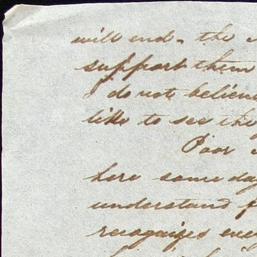 will end. the
support them
I do not believe
like to see the
Poor
here some day
understand
recognizes